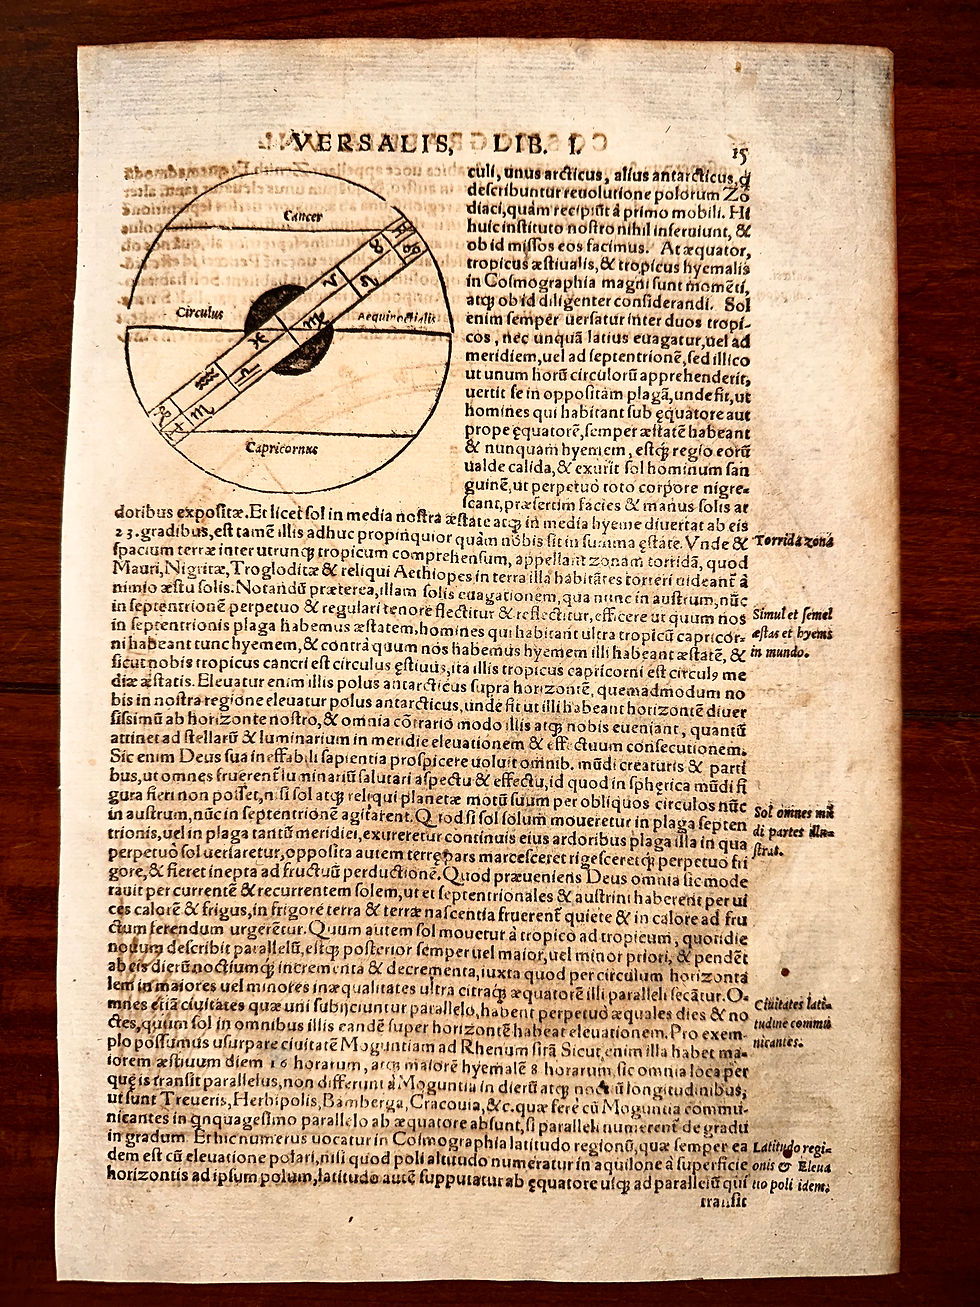 VERSALIS, LIB. I.
15
Cancer
Circulus
Aequinoctialis
Capricornus
culi, unus arcticus, alius antarcticus, ꝗ
describuntur reuolutione polorum Zo
diaci, quàm recipiūt à primo mobili. Hi
huic instituto nostro nihil inseruiunt, &
ob id missos eos facimus. At æquator,
tropicus æstiualis, & tropicus hyemalis
in Cosmographia magni sunt momēti,
atqꝫ ob id diligenter considerandi. Sol
enim semper uersatur inter duos tropi-
cos, nec unquā latius euagatur, uel ad
meridiem, uel ad septentrionē, sed illico
ut unum horū circulorū apprehenderit,
uertit se in oppositam plagā, unde fit, ut
homines qui habitant sub ęquatore aut
prope ęquatorē, semper æstatē habeant
& nunquam hyemem, estqꝫ regio eorū
ualde calida, & exurit sol hominum san
guinē, ut perpetuò toto corpore nigre-
scant, præsertim facies & manus solis ar
doribus expositæ. Et licet sol in media nostra æstate atqꝫ in media hyeme diuertat ab eis
23. gradibus, est tamē illis adhuc propinquior quàm nobis sit in summa ęstate. Vnde &
spacium terræ inter utrunqꝫ tropicum comprehensum, appellant zonam torridā, quod
Mauri, Nigritæ, Trogloditæ & reliqui Aethiopes in terra illa habitātes torreri uideant̃ à
nimio æstu solis. Notandū præterea, illam solis euagationem, qua nunc in austrum, nūc
in septentrionē perpetuo & regulari tenore flectitur & reflectitur, efficere ut quum nos
in septentrionis plaga habemus æstatem, homines qui habitant ultra tropicū capricor-
ni habeant tunc hyemem, & contrà quum nos habemus hyemem illi habeant æstatē, &
sicut nobis tropicus cancri est circulus ęstiuus, ita illis tropicus capricorni est circulꝰ me
diæ æstatis. Eleuatur enim illis polus antarcticus supra horizontē, quemadmodum no
bis in nostra regione eleuatur polus antarcticus, unde fit ut illi habeant horizontē diuer
sissimū ab horizonte nostro, & omnia cōtrario modo illis atqꝫ nobis eueniant, quantū
attinet ad stellarū & luminarium in meridie eleuationem & effectuum consecutionem.
Sic enim Deus sua ineffabili sapientia prospicere uoluit omnib. mūdi creaturis & parti
bus, ut omnes fruerent̃ luminariū salutari aspectu & effectu, id quod in sphęrica mūdi fi
gura fieri non posset, nisi sol atqꝫ reliqui planetæ motū suum per obliquos circulos nūc
in austrum, nūc in septentrionē agitarent. Quod si sol solùm moueretur in plaga septen
trionis, uel in plaga tantū meridiei, exureretur continuis eius ardoribus plaga illa in qua
perpetuò sol uersaretur, opposita autem terrę pars marcesceret rigesceretqꝫ perpetuo fri
gore, & fieret inepta ad fructuū perductionē. Quod præueniens Deus omnia sic mode
rauit per currentē & recurrentem solem, ut et septentrionales & austrini haberent per ui
ces calorē & frigus, in frigore terra & terræ nascentia fruerent̃ quiete & in calore ad fru
ctum ferendum urgerētur. Quum autem sol mouetur à tropico ad tropicum, quotidie
nouum describit parallelū, estqꝫ posterior semper uel maior, uel minor priori, & pendēt
ab eis dierū noctiumqꝫ incrementa & decrementa, iuxta quod per circulum horizonta
lem in maiores uel minores inæqualitates ultra citraqꝫ æquatorē illi paralleli secātur. O-
mnes etiā ciuitates quæ uni subijciuntur parallelo, habent perpetuò æquales dies & no
ctes, quum sol in omnibus illis eandē super horizontē habeat eleuationem. Pro exem-
plo possumus usurpare ciuitatē Moguntiam ad Rhenum sitā. Sicut enim illa habet ma-
iorem æstiuum diem 16 horarum, atqꝫ maiorē hyemalē 8 horarum, sic omnia loca per
quę is transit parallelus, non differunt à Moguntia in dierū atqꝫ noctiū longitudinibus,
ut sunt Treueris, Herbipolis, Bamberga, Cracouia, &c. quæ ferè cū Moguntia commu-
nicantes in qnquagesimo parallelo ab æquatore absunt, si paralleli numerent̃ de gradu
in gradum. Et hic numerus uocatur in Cosmographia latitudo regionū, quæ semper ea
dem est cū eleuatione polari, nisi quod poli altitudo numeratur in aquilone à superficie
horizontis ad ipsum polum, latitudo autē supputatur ab ęquatore usqꝫ ad parallelū qui
transit
Torrida zona
Simul et semel
æstas et hyems
in mundo.
Sol omnes mū
di partes illu-
strat.
Ciuitates lati-
tudine commu
nicantes.
Latitudo regi-
onis & Eleua
tio poli idem.